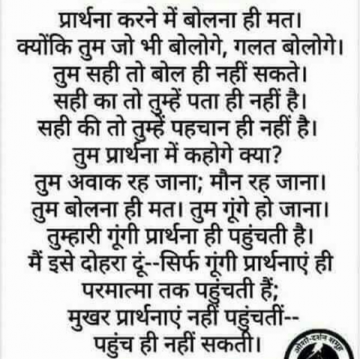 प्रार्थना करने में बोलना ही मत।
क्योंकि तुम जो भी बोलोगे, गलत बोलोगे।
तुम सही तो बोल ही नहीं सकते।
सही का तो तुम्हें पता ही नहीं है।
सही की तो तुम्हें पहचान ही नहीं है।
तुम प्रार्थना में कहोगे क्या?
तुम अवाक रह जाना; मौन रह जाना।
तुम बोलना ही मत। तुम गूंगे हो जाना।
तुम्हारी गूंगी प्रार्थना ही पहुंचती है।
मैं इसे दोहरा दूं--सिर्फ गूंगी प्रार्थनाएं ही
परमात्मा तक पहुंचती हैं;
मुखर प्रार्थनाएं नहीं पहुंचतीं--
पहुंच ही नहीं सकतीं।